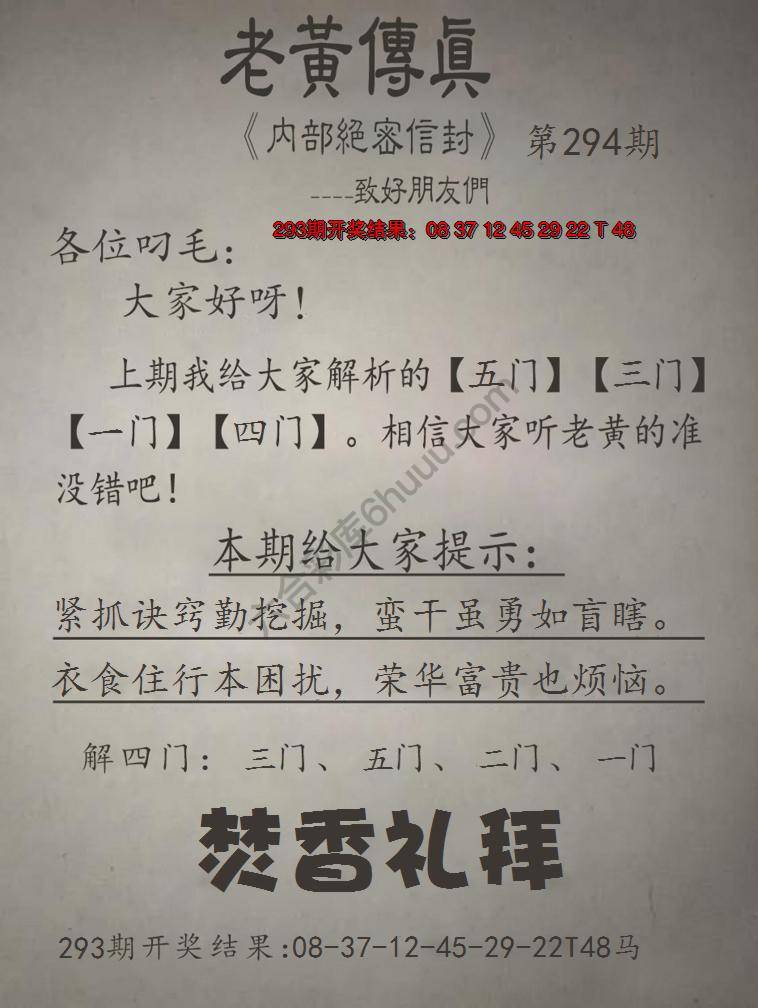 老黃傳真
《内部絕密信封》 第294期
----致好朋友們
293期开奖结果：08 37 12 45 29 22 T 48
各位叼毛：
大家好呀！
上期我给大家解析的【五门】【三门】
【一门】【四门】。相信大家听老黄的准
没错吧！
本期给大家提示：
紧抓诀窍勤挖掘，蛮干虽勇如盲瞎。
衣食住行本困扰，荣华富贵也烦恼。
解四门： 三门、 五门、 二门、 一门
焚香礼拜
293期开奖结果:08-37-12-45-29-22T48马
六合彩库6huuu.com